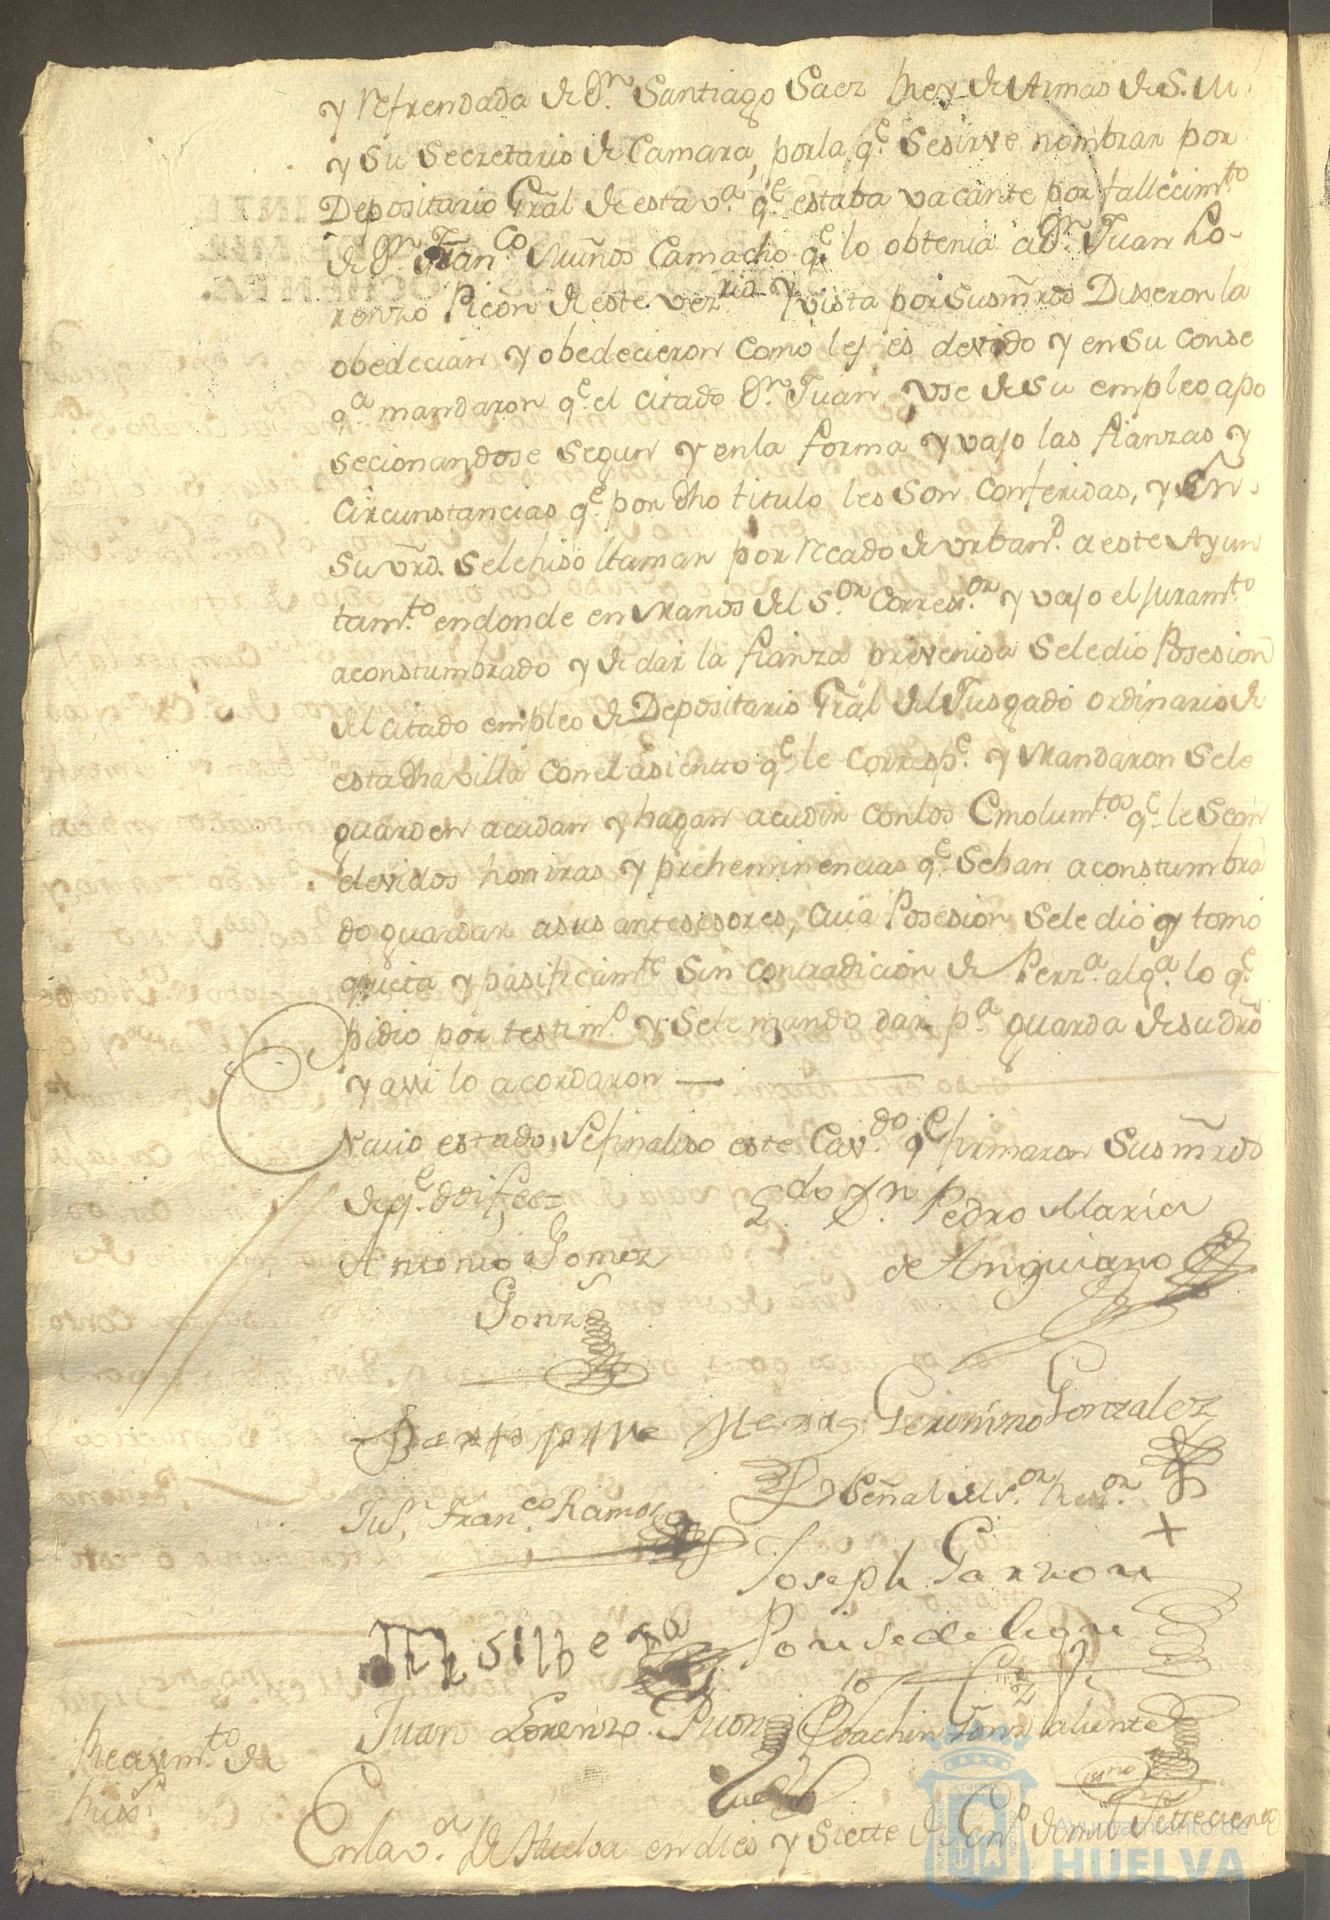 y Refrendada de Dn. Santiago Saez Rey de Armas de S. M.
y su Secretario de Camara, por la qe. se sirve nombrar por
Depositario Gral de esta va. qe. estaba vacante por fallecimto
de Dn. Franco. Muños Camacho qe. lo obtenia a Dn. Juan Lo-
renzo Picon de este vezrio. y vista por sus mrds Dixeron la
obedecian y obedecieron como les es devido y en su conse
qa mandaron qe. el citado Dn. Juan, use de su empleo apo
secionandose segun y en la forma y vajo las fianzas y
Circunstancias qe. por dho titulo les son conferidas, y En
su vrd. se le hiso llamar por Recado de vrband. a este Ayun
tamto. en donde en manos del Sor. Corregor. y vajo el juramto
aconstumbrado y de dar la fianza prevenida se le dio Posesion
del citado empleo de Depositario Gral del Jusgado ordinario de
esta dha villa con el asientto qe. le correspe. y Mandaron se le
guarden acudan y hagan acudir con los Emolumtos. qe. le sean
devidos honrras y preheminencias qe. se han aconstumbra
do guardar a sus antesesores, cuia Posesion se le dió y tomó
quieta y pasificamte sin contradicion de Perza. alga. lo qe.
pidio por testimo. y se le mando dar pa. guarda de su dro
y assi lo acordaron
En cuio estado se finaliso este Cavdo. qe firmaron sus mrds
de qe. doi fee=
Antonio Gomez
Gonz
Ldo. Dn. Pedro Maria
de Anguiano
Geronimo Gonzalez
Señal del Sor. Rexor.
+
Jun. Franco. Ramos
Joseph Garzon
Ponse de Leon
silbera
Juan Lorenzo Picon
Joachin Gonz
Recivimto. de
En la va. de Huelva en dies y siette de Eno. de mil Settecientos
Ayuntamiento de
HUELVA